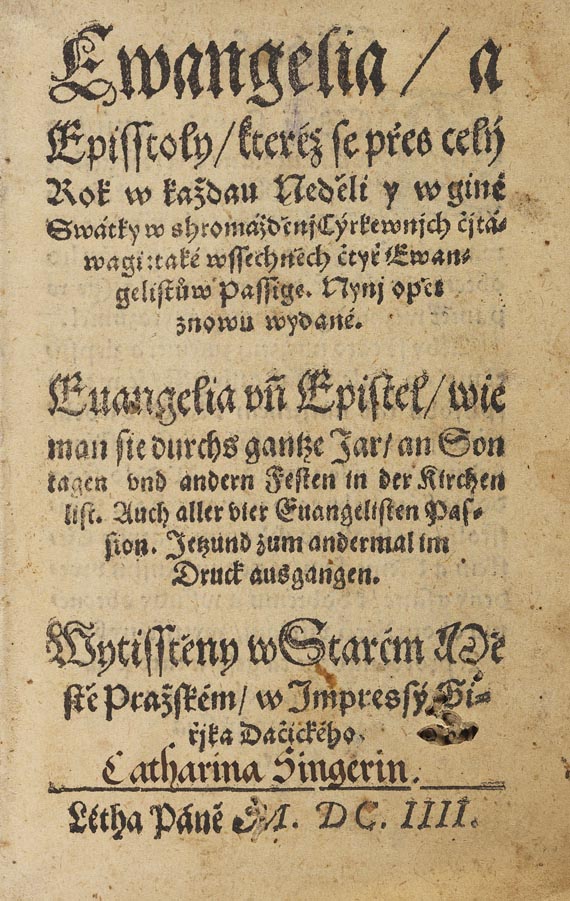 Ewangelia / a
Episstoly / kteréž se přes celý
Rok w každau Neděli y w giné
Swátky w shromážděnj Cýrkewnjch čjtá-
wagj: také wssechněch čtyř Ewan-
gelistůw Passige. Nynj opět
znowu wydané.
Euangelia vñ Epistel / wie
man sie durchs gantze Jar / an Son
tagen vnd andern Festen in der Kirchen
list. Auch aller vier Euangelisten Pas-
sion. Jetzund zum andermal im
Druck ausgangen.
Wytisstěny w Starém Mě
stě Pražském / w Impressý Gi-
řjka Dačického.
Catharina Singerin.
Létha Páně M. DC. IIII.